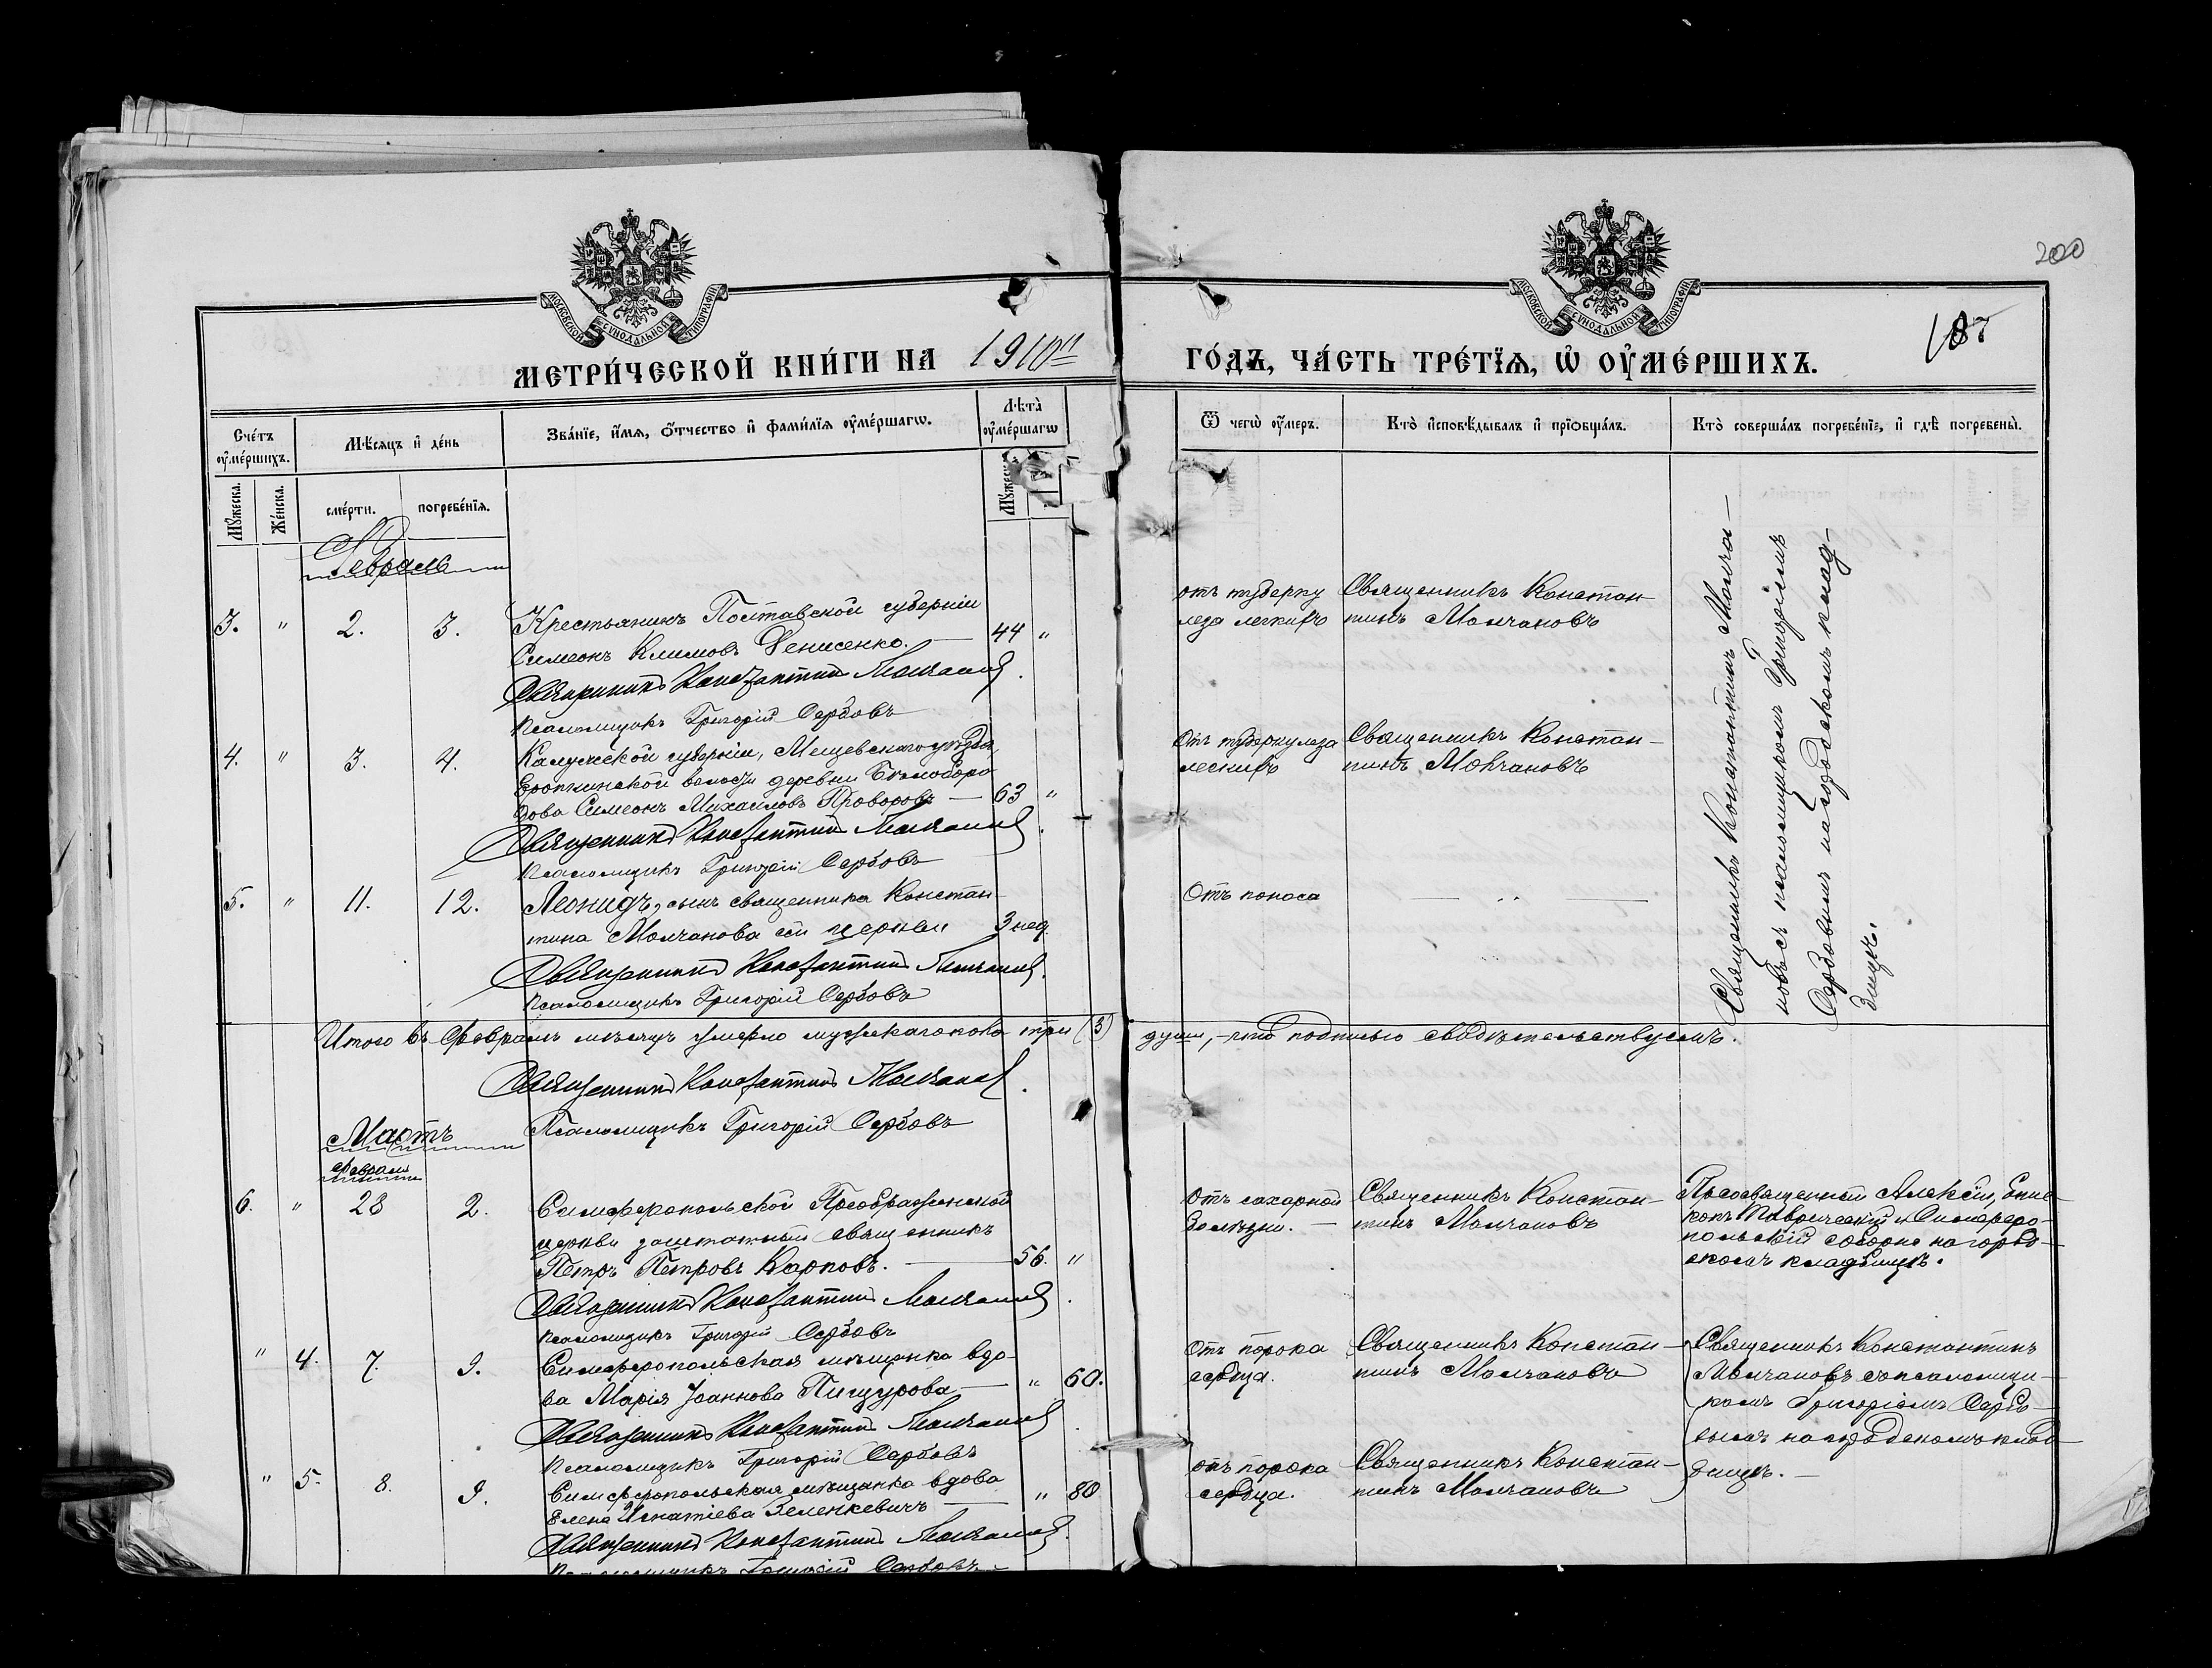 200
187
МОСКОВСКОЙ СѴНОДАЛЬНОЙ ТИПОГРАФІИ
МОСКОВСКОЙ СѴНОДАЛЬНОЙ ТИПОГРАФІИ
МЕТРИ́ЧЕСКОЙ КНИ́ГИ НА 1910й ГО́ДЪ, ЧА́СТЬ ТРЕ́ТЇѦ, Ѡ҆ ОУ҆МЕ́РШИХЪ.
Сче́тъ оу҆ме́ршихъ.
Мꙋ́жеска.
Же́нска.
Мѣ́сѧцъ и҆ де́нь
сме́рти.
погребе́нїѧ.
Зва́нїе, и҆́мѧ, ѻ҆́тчество и҆ фами́лїѧ оу҆ме́ршагѡ.
Лѣ́та оу҆ме́ршагѡ
Мꙋ́жеска
Ѿ чегѡ̀ оу҆́меръ.
Кто̀ и҆сповѣ́дывалъ и҆ прїѻбща́лъ.
Кто̀ соверша́лъ погребе́нїе, и҆ гдѣ̀ погребены̀.
Февраль
3. " 2. 3. Крестьянинъ Полтавской губерніи
Симеонъ Климовъ Денисенко. — 44 "
Священникъ Константинъ Молчановъ.
Псаломщикъ Григорій Сербовъ
отъ туберку
леза легкихъ
Священникъ Констан
тинъ Молчановъ
4. " 3. 4. Калужской губерніи, Мещевскаго уѣзда
волости деревни
Симеонъ Михаиловъ Проворовъ — 63 "
Священникъ Константинъ Молчановъ.
Псаломщикъ Григорій Сербовъ
Отъ туберкулеза
легкихъ
Священникъ Констан-
тинъ Молчановъ
5. " 11. 12. Леонидъ, сынъ священника Констан-
тина Молчанова сей церкви 3 нед.
Священникъ Константинъ Молчановъ.
Псаломщикъ Григорій Сербовъ
Отъ поноса — " —
Священникъ Константинъ Молча-
новъ съ псаломщикомъ Григоріемъ
Сербовымъ на городскомъ клад-
бищѣ.
Итого въ Февралѣ мѣсяцѣ умерло мужескаго пола три (3) души, — что подписью свидѣтельствуемъ.
Священникъ Константинъ Молчановъ.
Псаломщикъ Григорій Сербовъ
Мартъ
февраля
6. " 28 2. Симферопольской Преображенской
церкви заштатный священникъ
Петръ Петровъ Карповъ. — 56. "
Священникъ Константинъ Молчановъ.
Псаломщикъ Григорій Сербовъ
Отъ сахарной
болѣзни. —
Священникъ Констан-
тинъ Молчановъ
Преосвященный Алексій, Епис-
копъ Таврическій и Симферо-
польскій соборне на город-
скомъ кладбищѣ.
" 4. 7. 9. Симферопольская мѣщанка вдо-
ва Марія Іоаннова Пищурова — " 60.
Священникъ Константинъ Молчановъ.
Псаломщикъ Григорій Сербовъ
Отъ порока
сердца.
Священникъ Констан-
тинъ Молчановъ
Священникъ Константинъ
Молчановъ съ псаломщи-
комъ Григоріемъ Сербо-
вымъ на городскомъ клад-
бищѣ. —
" 5. 8. 9. Симферопольская мѣщанка вдова
Елена Игнатіева Зеленкевичъ — " 80
Священникъ Константинъ Молчановъ.
Псаломщикъ Григорій Сербовъ
отъ порока
сердца.
Священникъ Констан-
тинъ Молчановъ